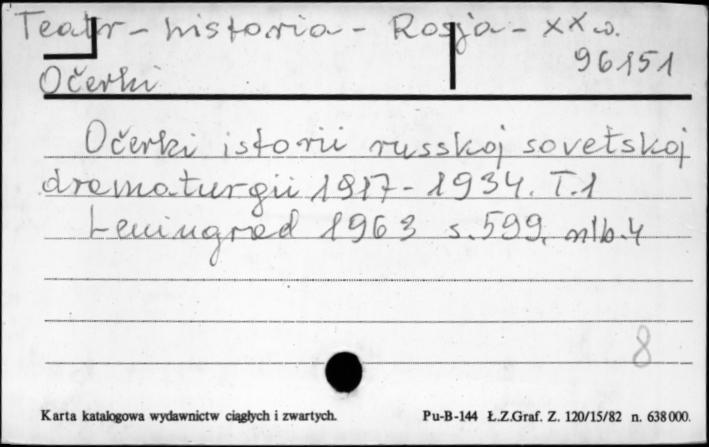 Teatr - historia - Rosja - XX w.
96151
Očerki
Očerki istorii russkoj sovetskoj
dramaturgii 1917 - 1934. T.1
Leningrad 1963 s. 599, nlb. 4
8
Karta katalogowa wydawnictw ciągłych i zwartych. Pu-B-144 Ł.Z.Graf. Z. 120/15/82 n. 638000.